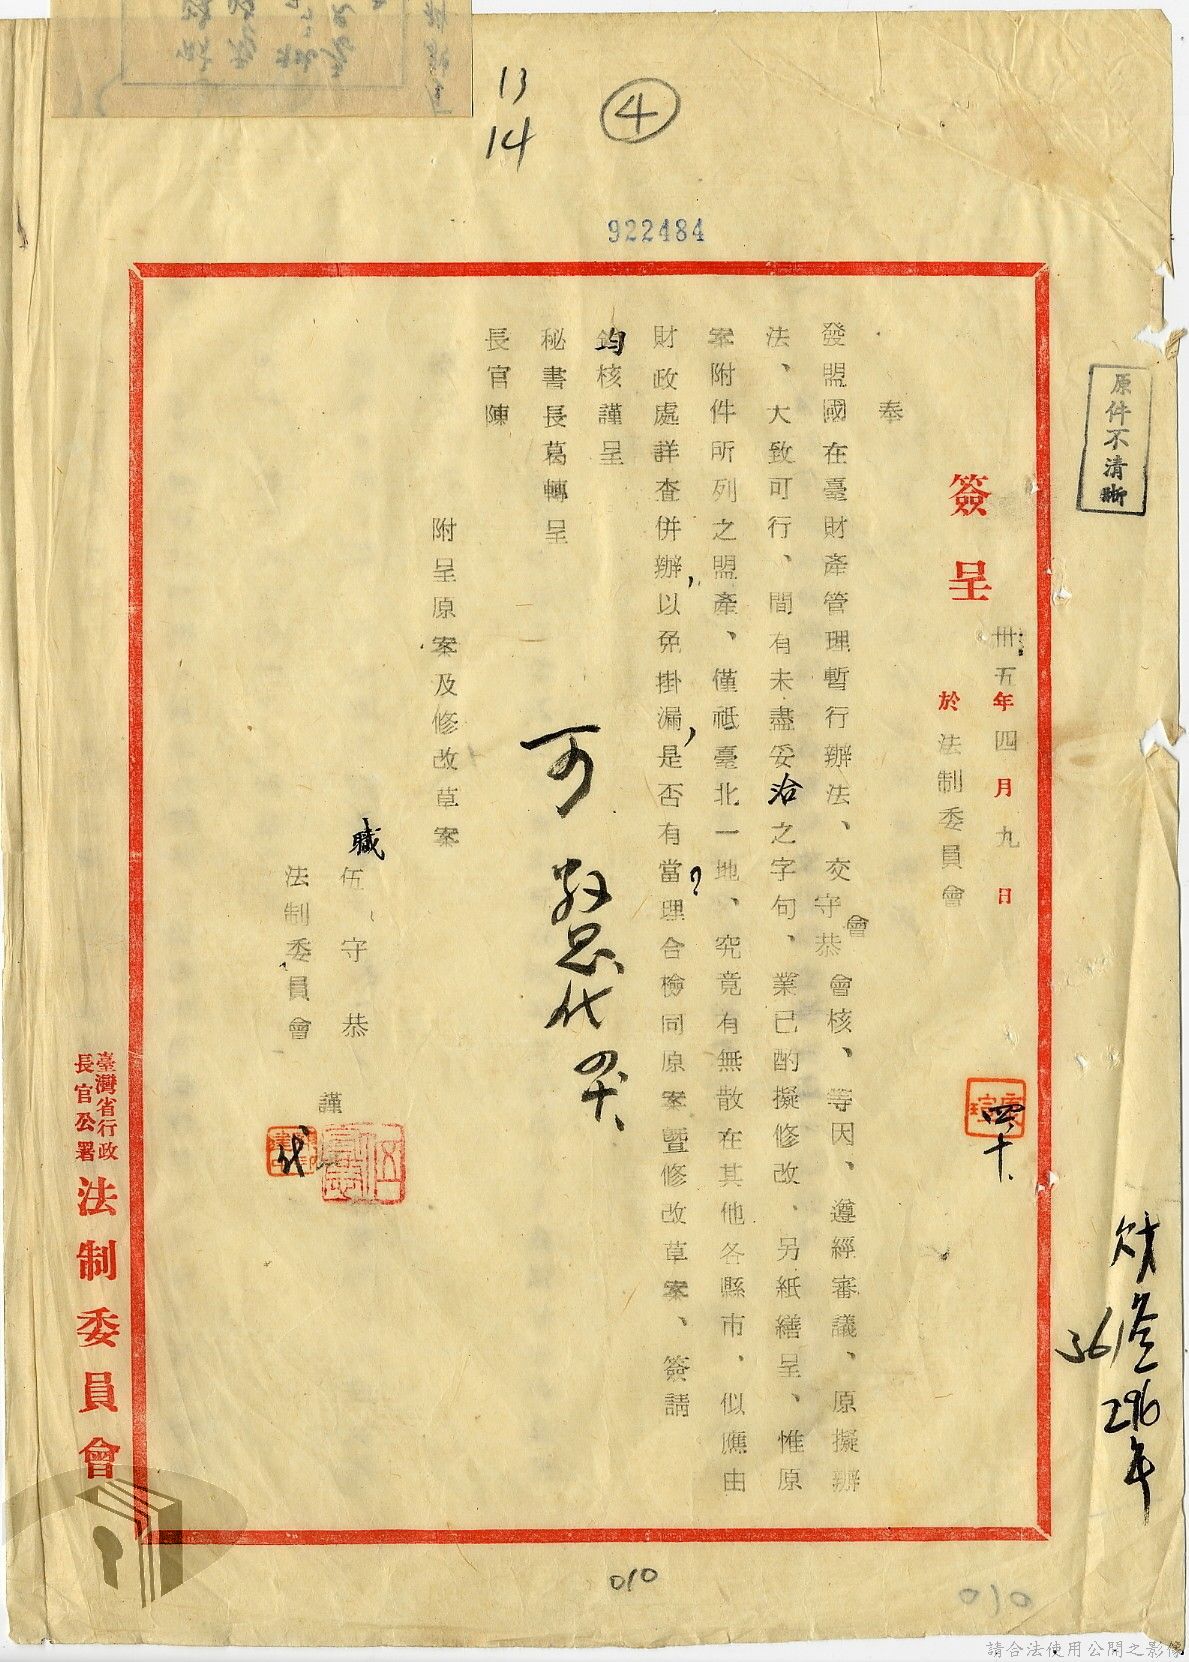 13
14
④
922484
原件不清晰
簽呈
卅五年四月九日
於法制委員會
奉
發盟國在臺財產管理暫行辦法、交守恭會會核、等因、遵經審議、原擬辦
法、大致可行、間有未盡妥洽之字句、業已酌擬修改、另紙繕呈、惟原
案附件所列之盟產、僅祗臺北一地、究竟有無散在其他各縣市、似應由
財政處詳查併辦,以免掛漏,是否有當?理合檢同原案暨修改草案、簽請
鈞核謹呈
秘書長葛轉呈
長官陳
附呈原案及修改草案
職伍守恭
謹
法制委員會
代
可
代
四十、
四十、
財叁
361
296
年
臺灣省行政
長官公署
法制委員會
010
010
請合法使用公開之影像